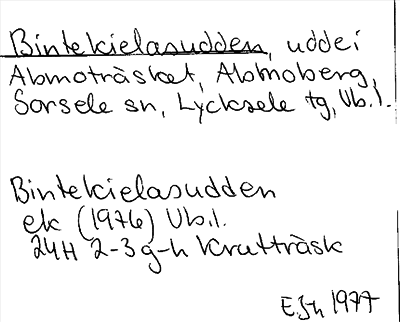 Bintekielasudden, udde i
Abmoträsket, Abmoberg,
Sorsele sn, Lycksele tg, Vb.l.
Bintekielasudden
ek (1976) Vb.l.
24H 2-3 g-h Krutträsk
1977